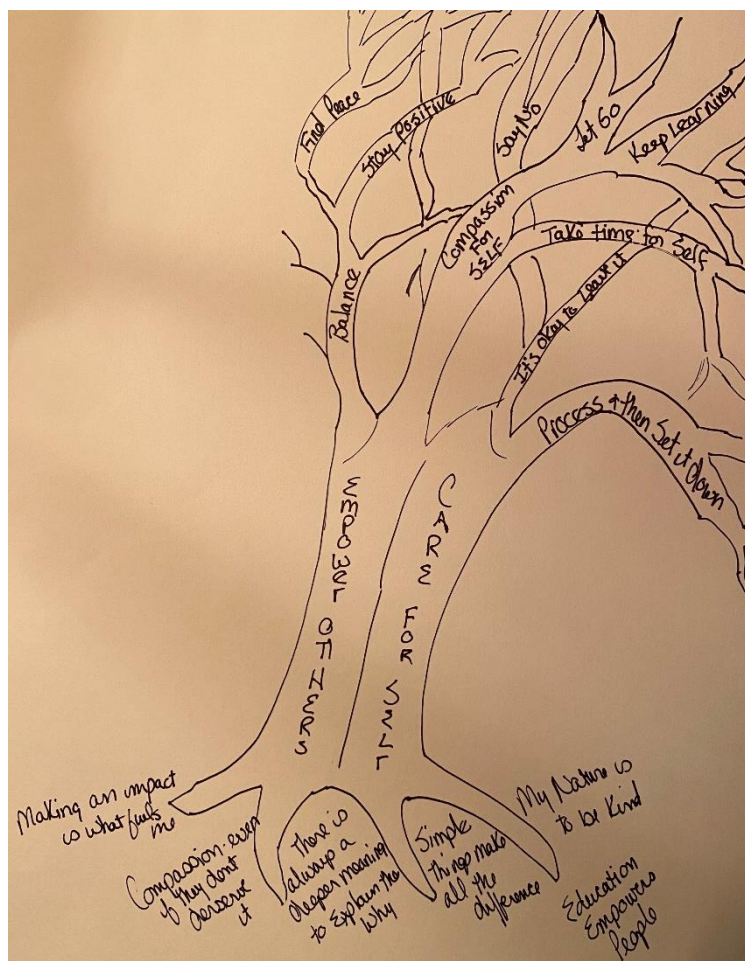 Find Peace
Stay Positive
Say No
Let Go
Keep Learning
Compassion
For
SELF
Take time for Self
Balance
It's okay to Leave it
Process & then Set it down
EMPOWER OTHERS
CARE FOR SELF
Making an impact
is what fuels
me
Compassion even
if they don't
deserve
it
There is
always a
deeper meaning
to Explain the
Why
Simple
things make
all the
difference
My Nature is
to be Kind
Education
Empowers
People